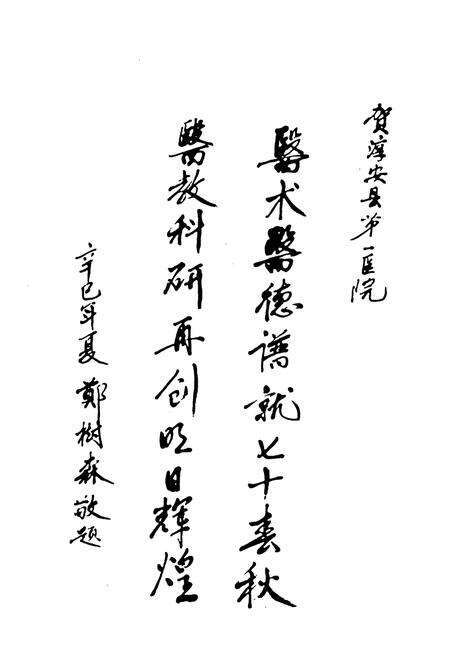 贺淳安县第一医院
醫术醫德谱就七十春秋
醫教科研再创明日辉煌
辛巳年夏 鄭樹森敬题